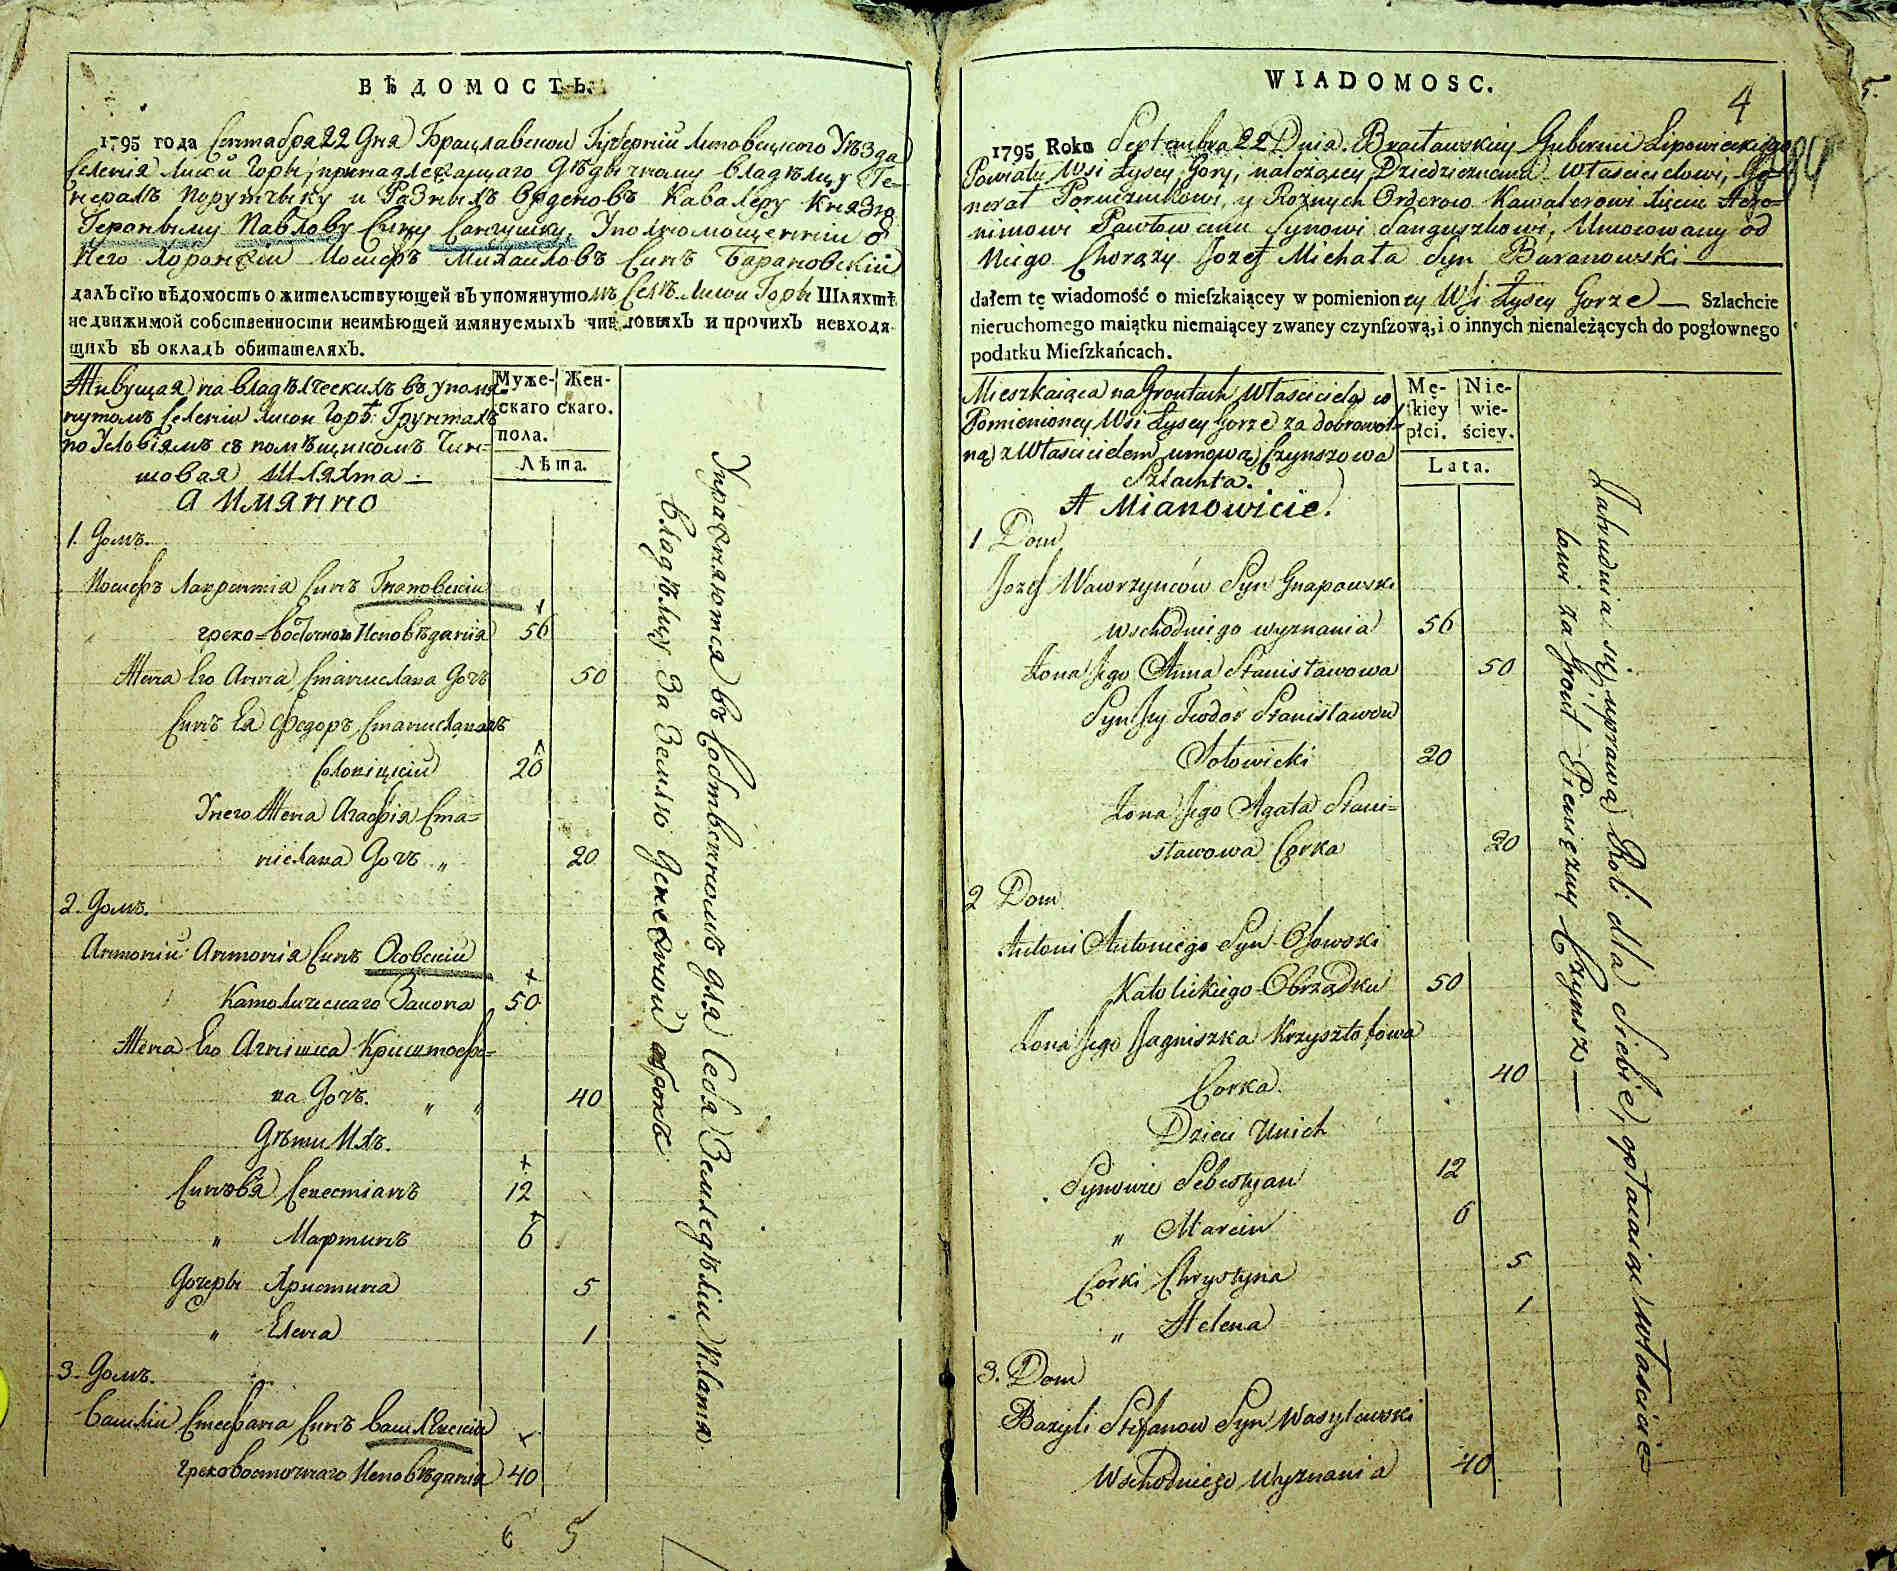 ВѢДОМОСТЬ.
1795 года Сентября 22 Дня Брацлавской Губерній Липовецкого Уѣзда
селенія Лисой Горы, принадлежащаго Дѣдычному владѣлцу Ге-
нералъ Порутчыку и Разныхъ Орденовъ Кавалеру Князю
Геронѣму Павлову Сину Сангушку, Уполномощенній о
Него Хоронжій Иосифъ Михайловъ Синъ Барановскій
далъ сїю вѣдомость о жительствующей въ упомянутомъ Селѣ Лисой Горы Шляхтѣ
недвижимой собственности неимѣющей имянуемыхъ чиншовыхъ и прочихъ невходя-
щихъ въ окладъ обитателяхъ.
Живущая на владѣлческихъ въ упомя-
нутомъ селеніи Лисой Горѣ Грунтахъ
по Условіямъ съ помѣщикомъ Чин-
шовая Шляхта
а имянно
Муже- Жен-
скаго скаго.
пола.
Лѣта.
1. Домъ.
Иосифъ Лаврентія Синъ Гнаповскій
греко=восточного Исповѣданія 56
Жена Его Анна Станислава Дочъ 50
Синъ Ея Федоръ Станиславовъ
Соловіцкій 20
У него Жена Агафія Ста=
нислава Дочъ „ 20
2. Домъ.
Антоній Антонія Синъ Осовскій
Католическаго Закона 50
Жена Его Агнішка Криштофо-
ва Дочъ. „ „ 40
Дѣти Ихъ.
Синовья Севестіанъ 12
„ Мартинъ 6
Дочеры Христина 5
„ Елена 1
3. Домъ.
Василій Стефана Синъ Василевскій
Грековосточнаго Исповѣданія 40
6 5
Упражняются въ Собственномъ для Себя Земледѣліи Платя
владѣлцу За Землю Денежной оброкъ
WIADOMOSC.
4
5.
1795 Roku Septembra 22 Dnia. Bracławskiey Gubernii Lipowieckiego
Powiatu Wsi Łysey Gory, należącey Dziedzicznemu Włascicielowi, Ge-
nerał Porucznikowi, y Roznych Orderow Kawalerowi Xięciu Hero-
nimowi Pawłowemu Synowi Sanguszkowi, Umocowany od
Niego Chorąży Jozef Michała Syn Baranowski
dałem tę wiadomość o mieſzkaiącey w pomienioney Wsi Łysey Gorze — Szlachcie
nieruchomego maiątku niemaiącey zwaney czynſzową, i o innych nienależących do pogłownego
podatku Mieſzkańcach.
Mieszkaiąca na Gruntach Własciciela w
Pomienioney Wsi Łysey Gorze za dobrowol-
ną z Włascicielem umową Czynszowa
Szlachta.
A Mianowicie.
Mę- Nie-
ſkiey wie-
płci. ściey.
Lata.
1 Dom
Jozef Wawrzyncow Syn Gnapowski
Wschodniego wyznania 56
Zona Jego Anna Stanisławowa 50
Syn Jey Teodor Stanisławow
Sołowicki 20
Zona Jego Agata Stani=
sławowa Corka 20
2 Dom
Antoni Antoniego Syn Osowski
Katolickiego Obrządku 50
Zona Jego Jagniszka Krzysztofowa
Corka. 40
Dzieci Unich
Synowie Sebestyan 12
„ Marcin 6
Corki Chrystyna 5
„ Helena 1
3. Dom
Bazyli Stefanow Syn Wasylewski
Wschodniego Wyznania 40
Zatrudnia się uprawą Roli dla Siebie, opłacaiąc włascicie
lowi za Grunt Pieniężny Czynsz —